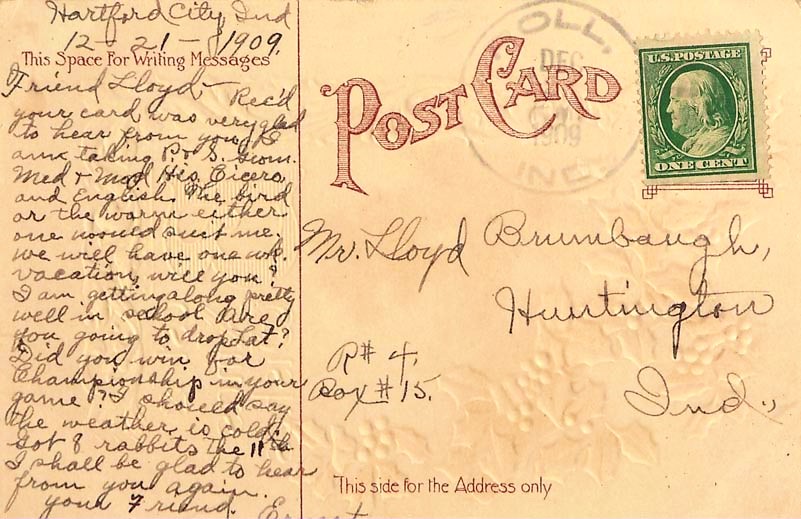 Hartford City, Ind
12-21-1909.
This Space For Writing Messages
Friend Lloyd-
Rec'd
your card was very glad
to hear from you. I
am taking P. & S. Geom.
Med & Mod His. Cicero
and English. The bird
or the worm either
one would suit me.
we will have one wk.
vacation, will you?
I am getting along pretty
well in school Are
you going to drop Lat?
Did you win for
Championship in your
game? I should say
the weather is cold.
Got 8 rabbits the 11th
I shall be glad to hear
from you again.
your Friend.
Ernest
POST CARD
OLL,
DEC
1909
IND
U.S. POSTAGE
ONE CENT
Mr. Lloyd Brumbaugh,
Huntington
R# 4.
Box # 15.
Ind.,
This side for the Address only